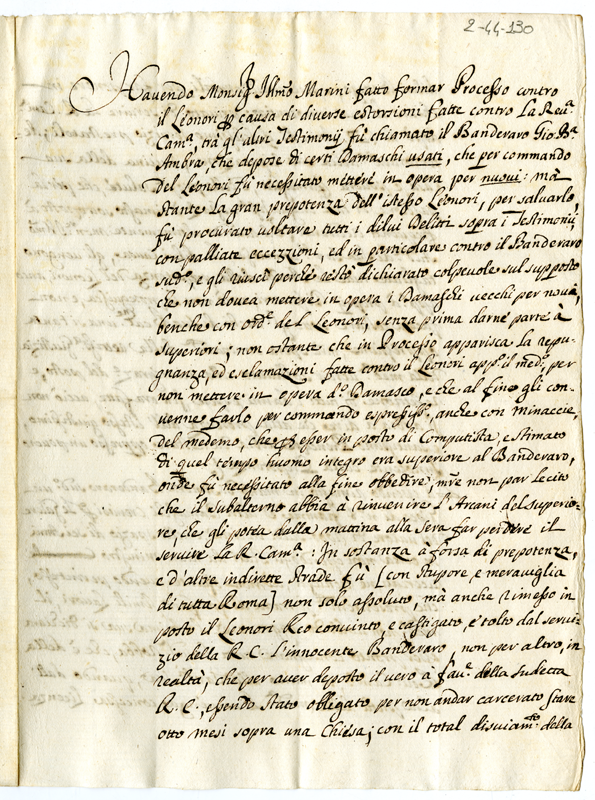 2-44-130
Havendo Monsig.r Ill.mo Marini fatto formar Processo contro
il Leonori p causa di diverse estorsioni fatte contro La Reu.a
Cam.a, trà gl'altri Testimonij fù chiamato il Banderaro Gio: B.a
Ambra, che depose di certi Damaschi usati, che per commando
del Leonori fù necessitato mettere in opera per nuovi: mà
stante La gran prepotenza dell'istesso Leonori, per salvarlo,
fù procurato voltare tutti i dilui Delitti sopra i Testimonij
con palliate eccezzioni, ed in particolare contro il Banderaro
sud.o, e gli riuscì perche restò dichiarato colpevole sul supposto
che non dovea mettere in opera i Damaschi vecchi per novi,
benche con ord.e del Leonori, senza prima darne parte à
superiori; non ostante che in Processo apparisca La repu-
gnanza, ed esclamazioni fatte contro il Leonori app.o il med.o, per
non mettere in opera d.o Damasco, e che al fine gli con-
venne farlo per commando espressiss.o, anche con minaccie,
del medemo, che p esser in posto di Computista, e stimato
di quel tempo huomo integro era superiore al Banderaro,
onde fù necessitato alla fine obbedire, m're non par lecito
che il subalterno abbia à rinvenire L'Arcani del superio-
re, che gli potea dalla mattina alla sera far perdere il
servire La R. Cam.a: In sostanza à forsa di prepotenza,
e d'altre indirette strade fù [con stupore, e meraviglia
di tutta Roma] non solo assoluto, mà anche rimesso in
posto il Leonori Reo convinto, e castigato, e tolto dal servi-
zio della R. C. L'innocente Banderaro, non per altro, in
realtà, che per aver deposto il vero à fau.e della sudetta
R. C., essendo stato obligato per non andar carcerato stare
otto mesi sopra una Chiesa; con il total disviam.to della